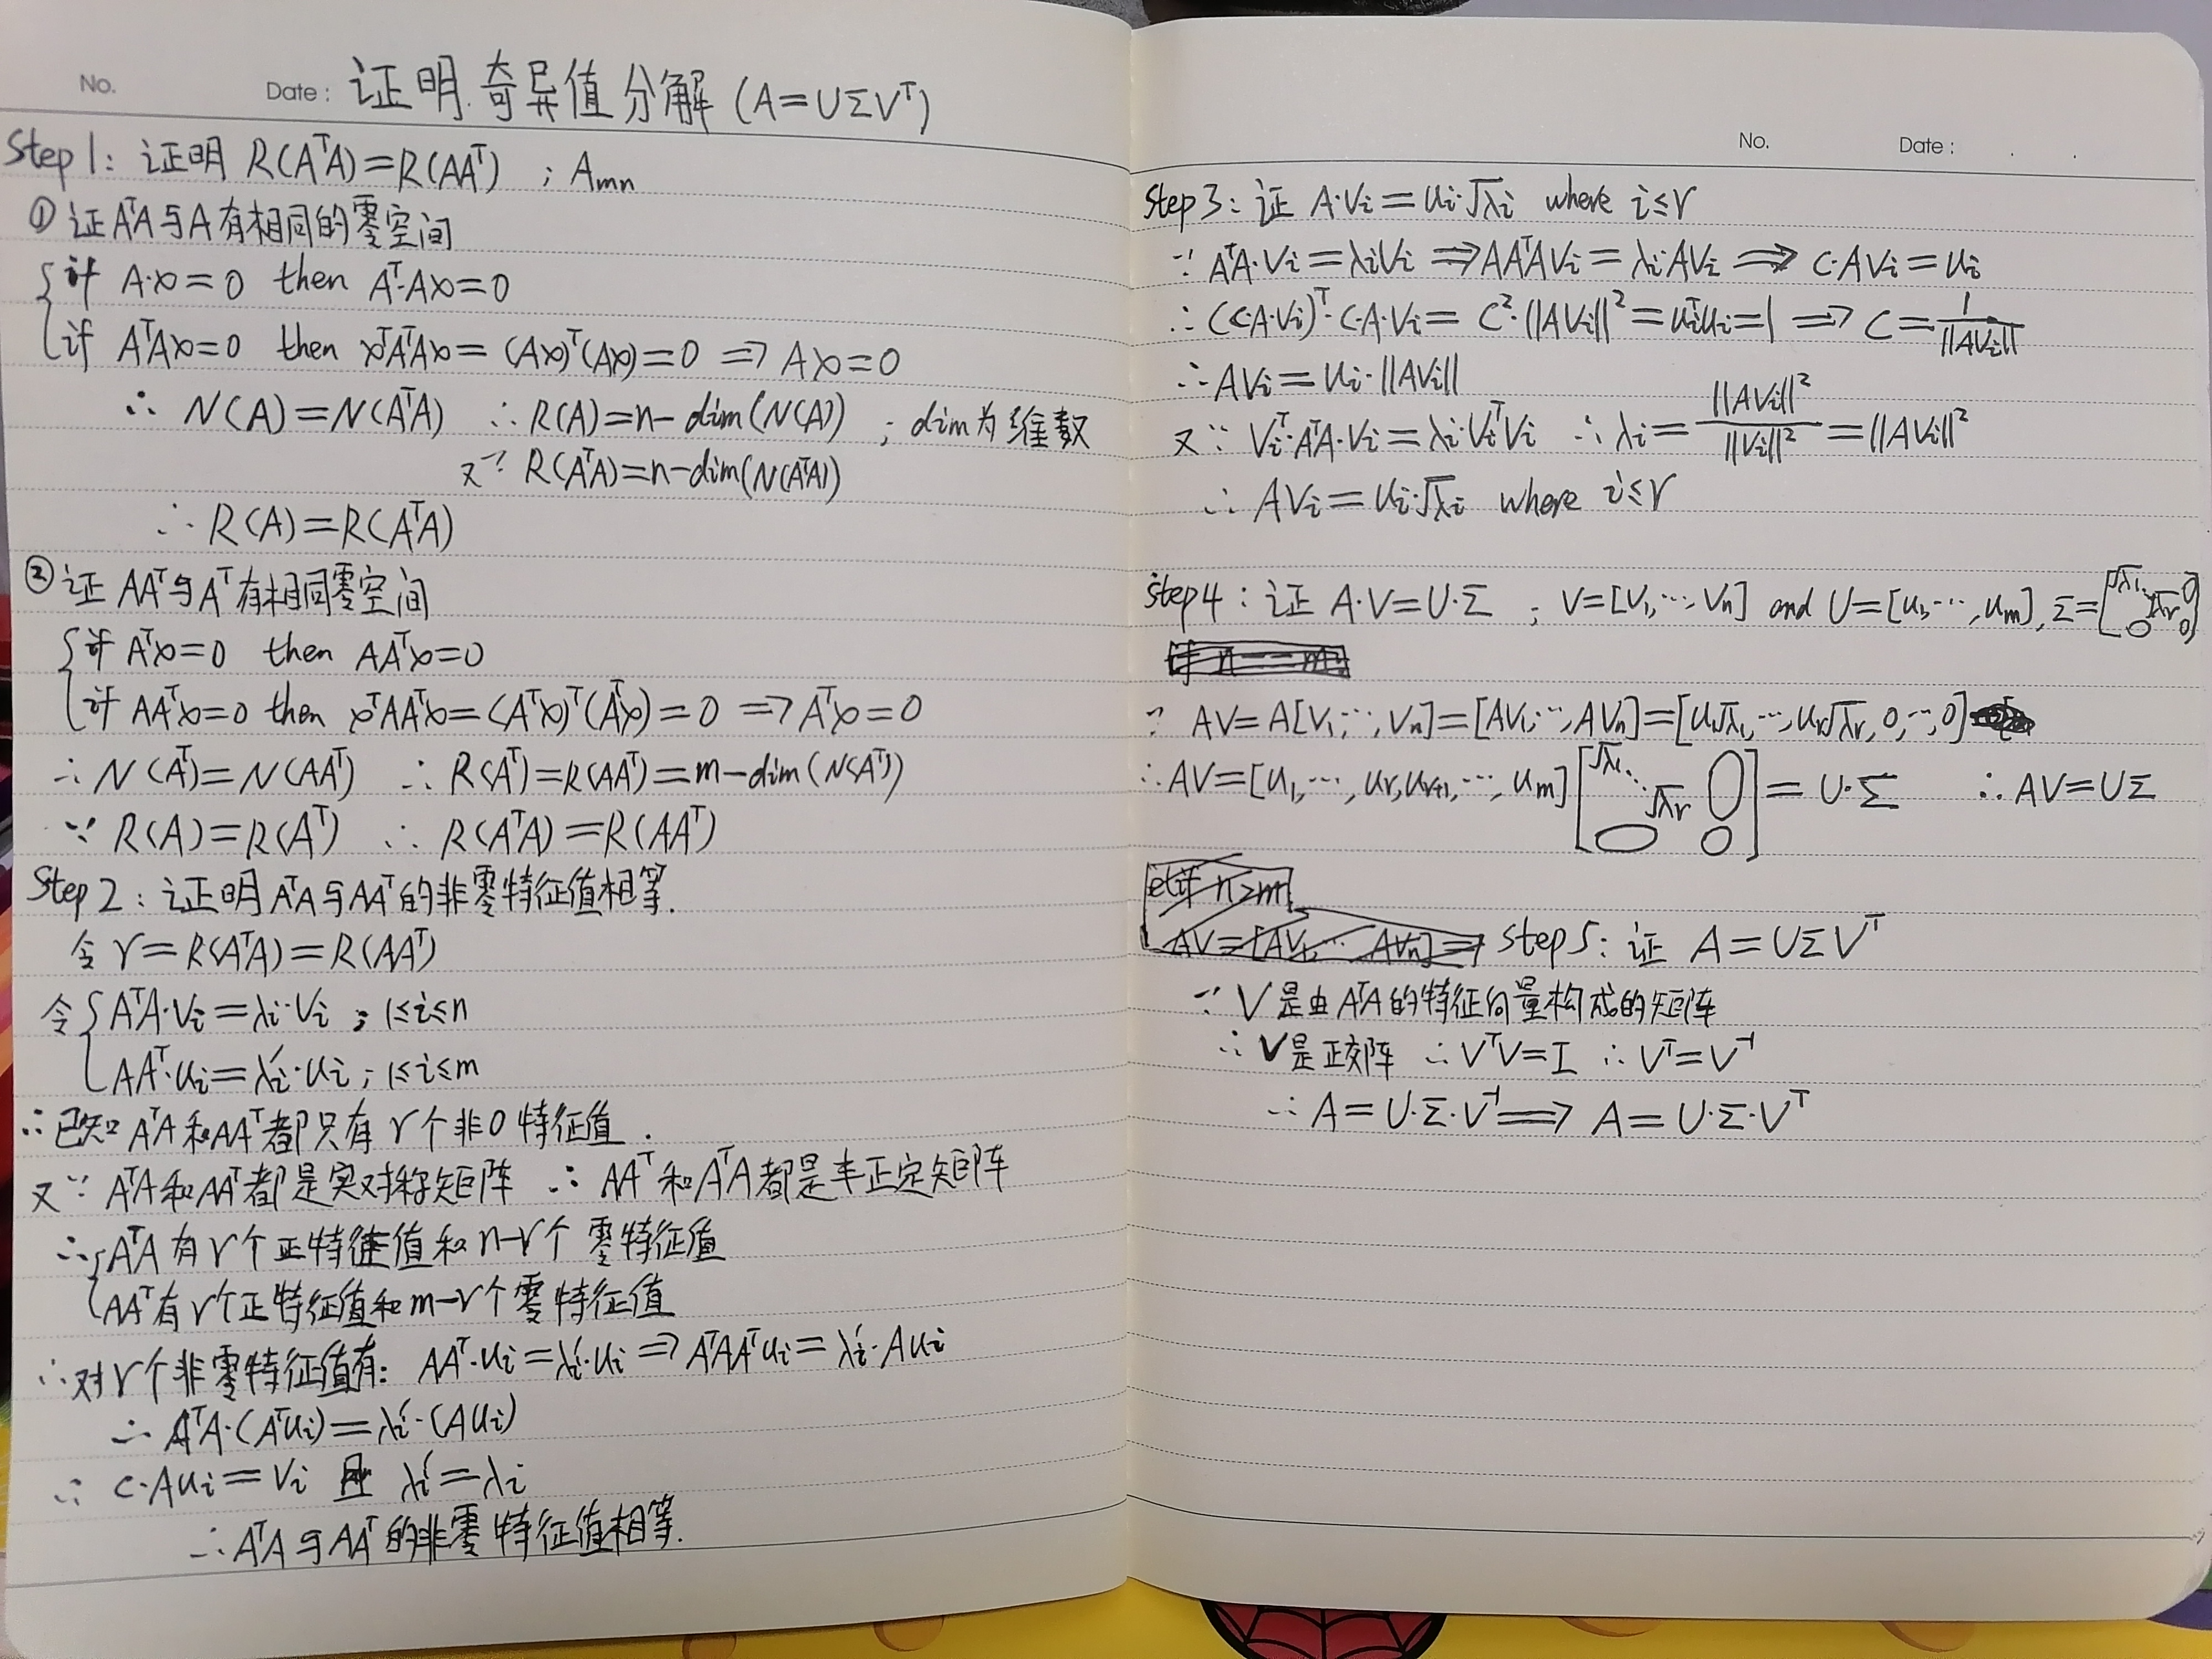 No.
Date: 证明.奇异值分解 (A=UΣVᵀ)
Step 1: 证明 R(AᵀA)=R(AAᵀ) ; Amn
① 证AᵀA与A有相同的零空间
{if A·x=0 then Aᵀ·Ax=0
if AᵀAx=0 then xᵀAᵀAx=(Ax)ᵀ(Ax)=0 ⇒ Ax=0
∴ N(A)=N(AᵀA) ∴ R(A)=n-dim(N(A)) ; dim为维数
又∵ R(AᵀA)=n-dim(N(AᵀA))
∴ R(A)=R(AᵀA)
② 证 AAᵀ与Aᵀ有相同零空间
{if Aᵀx=0 then AAᵀx=0
if AAᵀx=0 then xᵀAAᵀx=(Aᵀx)ᵀ(Aᵀx)=0 ⇒ Aᵀx=0
∴ N(Aᵀ)=N(AAᵀ) ∴ R(Aᵀ)=R(AAᵀ)=m-dim(N(Aᵀ))
∵ R(A)=R(Aᵀ) ∴ R(AᵀA)=R(AAᵀ)
Step 2: 证明AᵀA与AAᵀ的非零特征值相等.
令 r=R(AᵀA)=R(AAᵀ)
令{AᵀA·Vi=λi·Vi ; 1≤i≤n
AAᵀ·ui=λi′·ui ; 1≤i≤m
∴已知 AᵀA和AAᵀ都只有r个非0特征值.
又∵ AᵀA和AAᵀ都是实对称矩阵 ∴ AAᵀ和AᵀA都是半正定矩阵
∴{AᵀA有r个正特征值和n-r个 零特征值
AAᵀ有r个正特征值和m-r个零特征值
∴对r个非零特征值有: AAᵀ·ui=λi′·ui ⇒ AᵀAAᵀui=λi′·Aui
∴ AᵀA·(Aᵀui)=λi′·(Aui)
∴ c·Aui=Vi 且 λi′=λi
∴AᵀA与AAᵀ的非零特征值相等.
No. Date:
Step 3: 证 A·Vi=ui·√λi where i≤r
∵ AᵀA·Vi=λiVi ⇒ AAᵀAVi=λi·AVi ⇒ c·AVi=ui
∴ (c·A·Vi)ᵀ·c·A·Vi= c²·||AVi||²=uiᵀui=1 ⇒ c=1/||AVi||
∴ AVi=ui·||AVi||
又∵ Viᵀ·AᵀA·Vi=λi·ViᵀVi ∴ λi=||AVi||²/||Vi||²=||AVi||²
∴ AVi=ui·√λi where i≤r
Step 4: 证 A·V=U·Σ ; V=[V1,⋯,Vn] and U=[u1,⋯,um], Σ=[√λ1 ⋱ √λr 0 0 0]
if n==m:
∵ AV=A[V1,⋯,Vn]=[AV1,⋯,AVn]=[u1√λ1,⋯,ur√λr,0,⋯,0]
∴ AV=[u1,⋯,ur,ur+1,⋯,um][√λ1 ⋱ √λr 0 0 0]=U·Σ ∴ AV=UΣ
elif n>m
AV=[AV1,⋯AVn]=
Step 5: 证 A=UΣVᵀ
∵ V是由AᵀA的特征向量构成的矩阵
∴ V是正交阵 ∴ VᵀV=I ∴ Vᵀ=V⁻¹
∴ A=U·Σ·V⁻¹ ⇒ A=U·Σ·Vᵀ